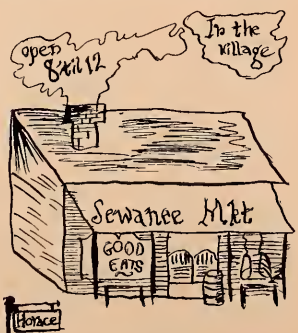 open
8 'til 12
In the
village
Sewanee Mkt
GOOD
EATS
Horace